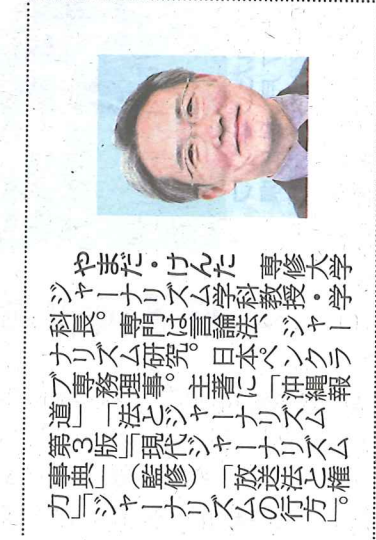 やまだ・けんた　専修大学
ジャーナリズム学科教授・学
科長。専門は言論法、ジャー
ナリズム研究。日本ペンクラ
ブ専務理事。主著に「沖縄報
道」「法とジャーナリズム
第３版」「現代ジャーナリズム
事典」（監修）「放送法と権
力」「ジャーナリズムの行方」。